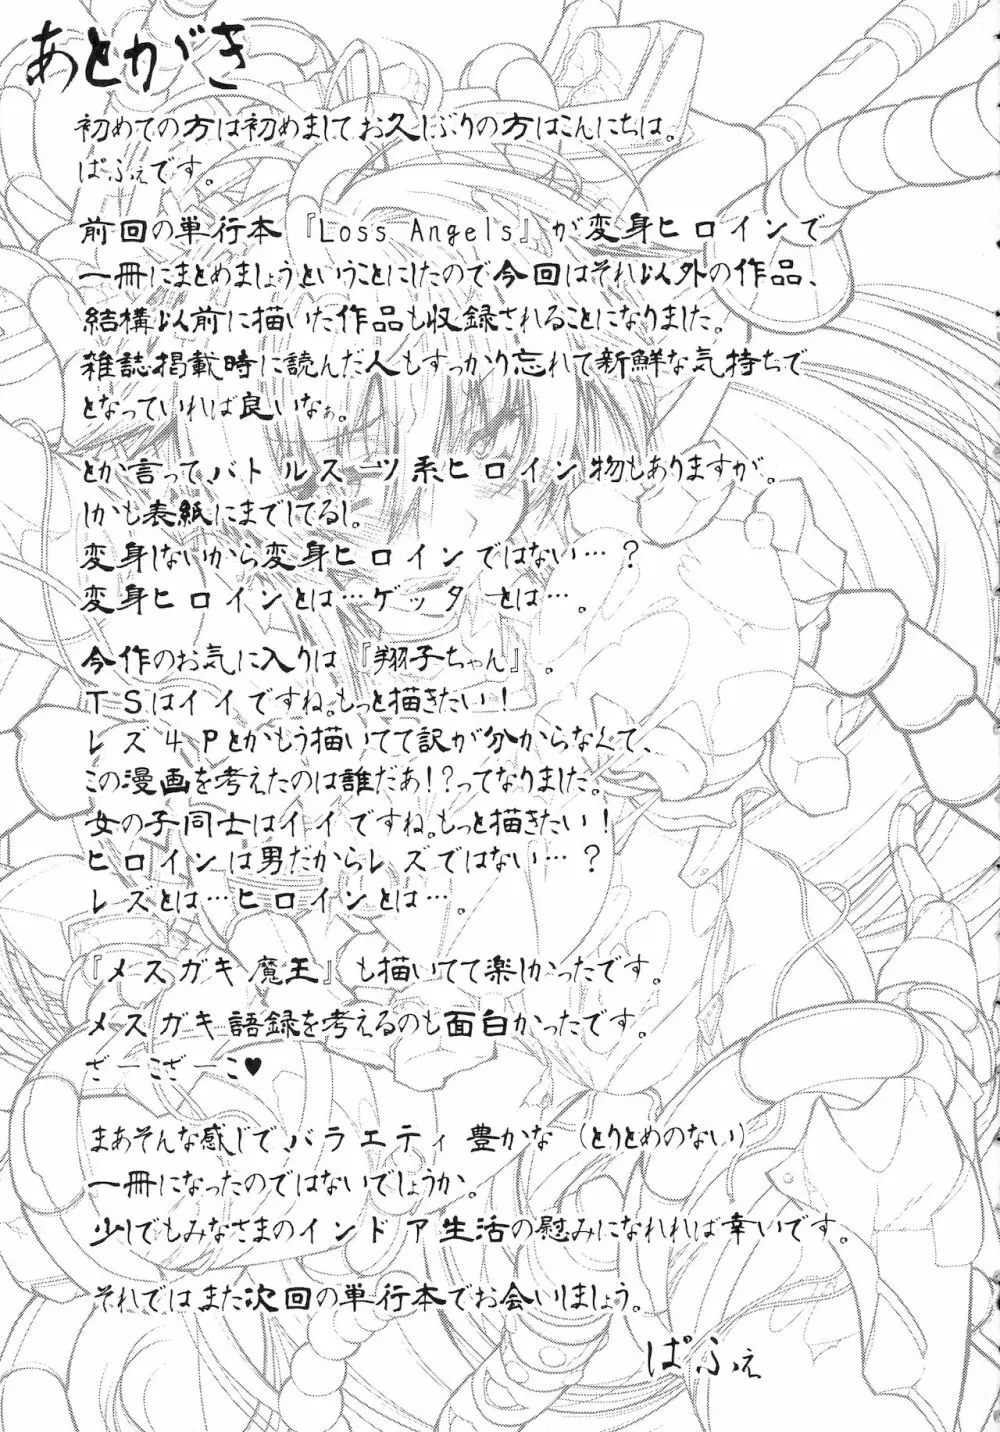 あとがき
初めての方は初めましてお久しぶりの方はこんにちは。
ぱふぇです。
前回の単行本『Loss Angels』が変身ヒロインで
一冊にまとめましょうということにしたので今回はそれ以外の作品、
結構以前に描いた作品も収録されることになりました。
雑誌掲載時に読んだ人もすっかり忘れて新鮮な気持ちで
となっていれば良いなぁ。
とか言って、バトルスーツ系ヒロイン物もありますが。
しかも表紙にまでしてるし。
変身しないから変身ヒロインではない…？
変身ヒロインとは…ゲッターとは…。
今作のお気に入りは『翔子ちゃん』。
TSはイイですね。もっと描きたい！
レズ4Pとかもう描いてて訳が分からなくて、
この漫画を考えたのは誰だあ！？ってなりました。
女の子同士はイイですね。もっと描きたい！
ヒロインは男だからレズではない…？
レズとは…ヒロインとは…。
『メスガキ魔王』も描いてて楽しかったです。
メスガキ語録を考えるのも面白かったです。
ざーこざーこ♥
まあそんな感じで、バラエティ豊かな（とりとめのない）
一冊になったのではないでしょうか。
少しでもみなさまのインドア生活の慰みになれれば幸いです。
それではまた次回の単行本でお会いしましょう。
ぱふぇ